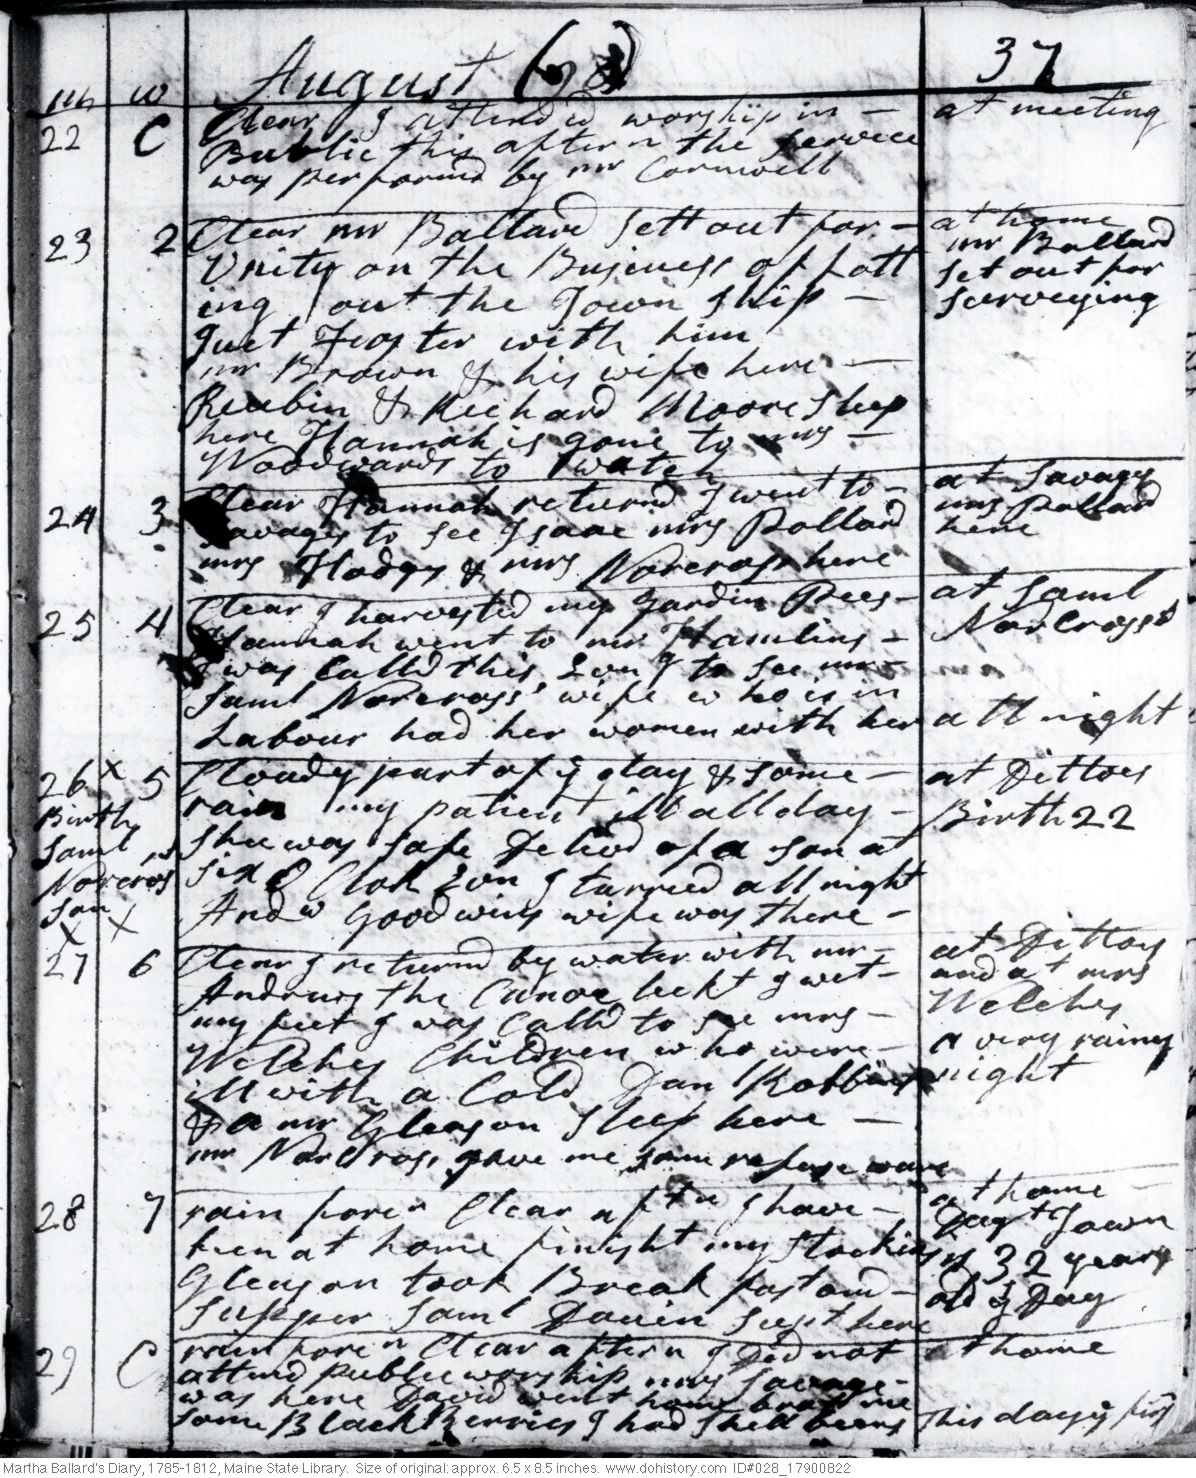 August
37
m w
22 C Clear I attended worship in - at meeting
Public this aftern the Service
was performd by mr Cornwell
23 2 Clear mr Ballard Sett out for - at home
Unity on the Business of lott mr Ballard
ing out the Town ship - set out for
Just Foster with him surveying
mr Brown & his wife here -
Reubin & Richard Moore Sleep
here Hannah is gone to mrs -
Woodwards to watch
24 3 Clear Hannah returnd I went to - at Savages
Savages to see Isaac mrs Pollard mrs Pollard
mrs Hodgs & mrs Norcross here here
25 4 Clear I harvested my Gardin Pees - at Saml
Hannah went to mr Hamlins - NorCross's
I was Calld this Evng to see mr -
Saml Norcross' wife who is in
Labour had her women with her all night
26 x 5 Cloudy part of ye day & some - at Dittoes
Birth rain my patient ill all day - Birth 22
Saml shee was safe Delivd of a son at
Norcros six O Clok Evn I tarried all night
son And w Goodwins wife was there -
x x
27 6 Clear I returnd by water with mr - at Dittoes
Andrus the Canoe leekt I wet - and at mrs
my feet I was Calld to see mrs - Welches
Welches Children who were - a very rainy
ill with a Cold Dan Robbins night
& a mr Gleason sleep here -
mr NorCross gave me some refuse ware
28 7 rain foren Clear aftn I have - at home
been at home finisht my Stockins Dagt Town
Gleason took Break fast and - is 32 years
Supper Saml Davin Supt here old ys Day
29 C rain foren Clear aftern I Did not at home
attend publick worship mrs Savage -
was here David went home brot me
some Black Berries I had Shell beens This day ye first
Martha Ballard's Diary, 1785-1812, Maine State Library. Size of original: approx. 6.5 x 8.5 inches. www.dohistory.com ID#028_17900822